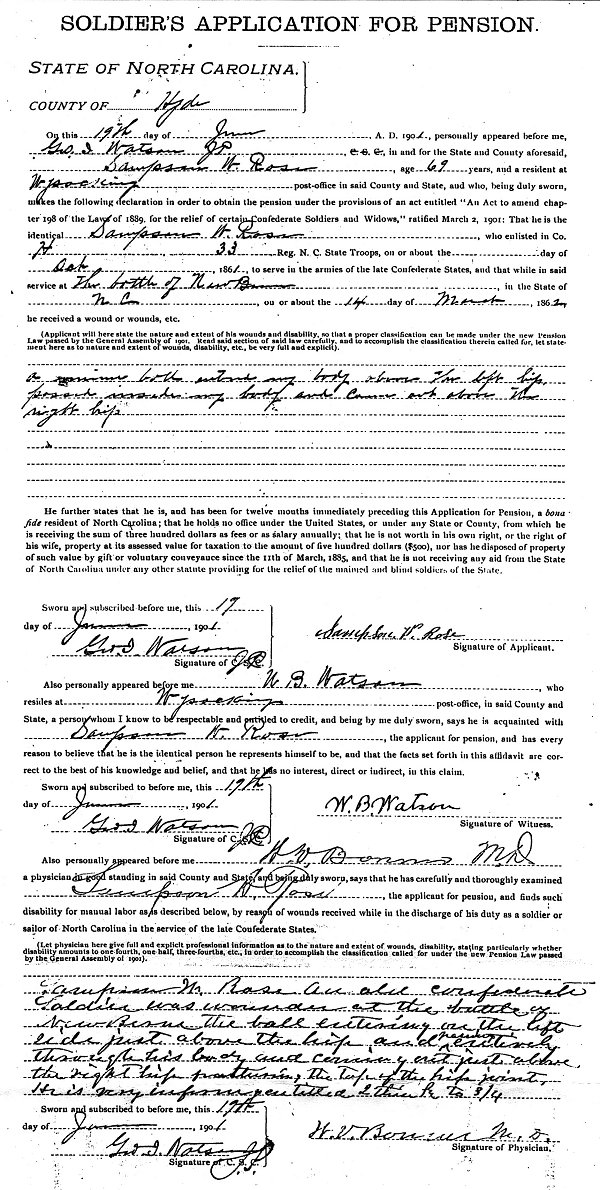 SOLDIER'S APPLICATION FOR PENSION.
STATE OF NORTH CAROLINA.
COUNTY OF Hyde
On this 19th day of June A. D. 1901, personally appeared before me,
Geo. I Watson JP, C. S. C., in and for the State and County aforesaid,
Sampson W. Rose, age 69 years, and a resident at
Wysocking post-office in said County and State, and who, being duly sworn,
makes the following declaration in order to obtain the pension under the provisions of an act entitled "An Act to amend chap-
ter 198 of the Laws of 1889, for the relief of certain Confederate Soldiers and Widows," ratified March 2, 1901: That he is the
identical Sampson W. Rose, who enlisted in Co.
H, 33 Reg. N. C. State Troops, on or about the day of
Oct, 1861, to serve in the armies of the late Confederate States, and that while in said
service at The battle of New Berne, in the State of
N C, on or about the 14 day of March, 1862,
he received a wound or wounds, etc.
(Applicant will here state the nature and extent of his wounds and disability, so that a proper classification can be made under the new Pension
Law passed by the General Assembly of 1901. Read said section of said law carefully, and to accomplish the classification therein called for, let state-
ment here as to nature and extent of wounds, disability, etc., be very full and explicit).
a minnie ball my body above the left hip
passed my body and came out above the
right hip
He further states that he is, and has been for twelve months immediately preceding this Application for Pension, a bona
fide resident of North Carolina; that he holds no office under the United States, or under any State or County, from which he
is receiving the sum of three hundred dollars as fees or as salary annually; that he is not worth in his own right, or the right of
his wife, property at its assessed value for taxation to the amount of five hundred dollars ($500), nor has he disposed of property
of such value by gift or voluntary conveyance since the 11th of March, 1885, and that he is not receiving any aid from the State
of North Carolina under any other statute providing for the relief of the maimed and blind soldiers of the State.
Sworn and subscribed before me, this 19
day of June, 1901
Geo. I. Watson JP
Signature of C. S. C.
Sampson W. Rose
Signature of Applicant.
Also personally appeared before me W B. Watson, who
resides at Wysocking post-office, in said County and
State, a person whom I know to be respectable and entitled to credit, and being by me duly sworn, says he is acquainted with
Sampson W. Rose, the applicant for pension, and has every
reason to believe that he is the identical person he represents himself to be, and that the facts set forth in this affidavit are cor-
rect to the best of his knowledge and belief, and that he has no interest, direct or indirect, in this claim.
Sworn and subscribed to before me, this 19th
day of June, 1901.
Geo. I Watson JP
Signature of C. S. C.
W. B. Watson
Signature of Witness.
Also personally appeared before me M.D
a physician in good standing in said County and State, and being duly sworn, says that he has carefully and thoroughly examined
Sampson W. Rose, the applicant for pension, and finds such
disability for manual labor as is described below, by reason of wounds received while in the discharge of his duty as a soldier or
sailor of North Carolina in the service of the late Confederate States.
(Let physician here give full and explicit professional information as to the nature and extent of wounds, disability, stating particularly whether
disability amounts to one-fourth, one-half, three-fourths, etc., in order to accomplish the classification called for under the new Pension Law passed
by the General Assembly of 1901).
Sampson W. Rose An old confederate
Soldier was wounded at the battle of
New Berne the ball entering on the left
side just above the hip and entirely
through his body and coming out just above
the right hip fracturing the top of the hip joint,
He is very infirm entitled I think to 3/4
Sworn and subscribed to before me, this 19th
day of June, 1901
Geo. I Watson J.P.
Signature of C. S. C.
M. D.
Signature of Physician.